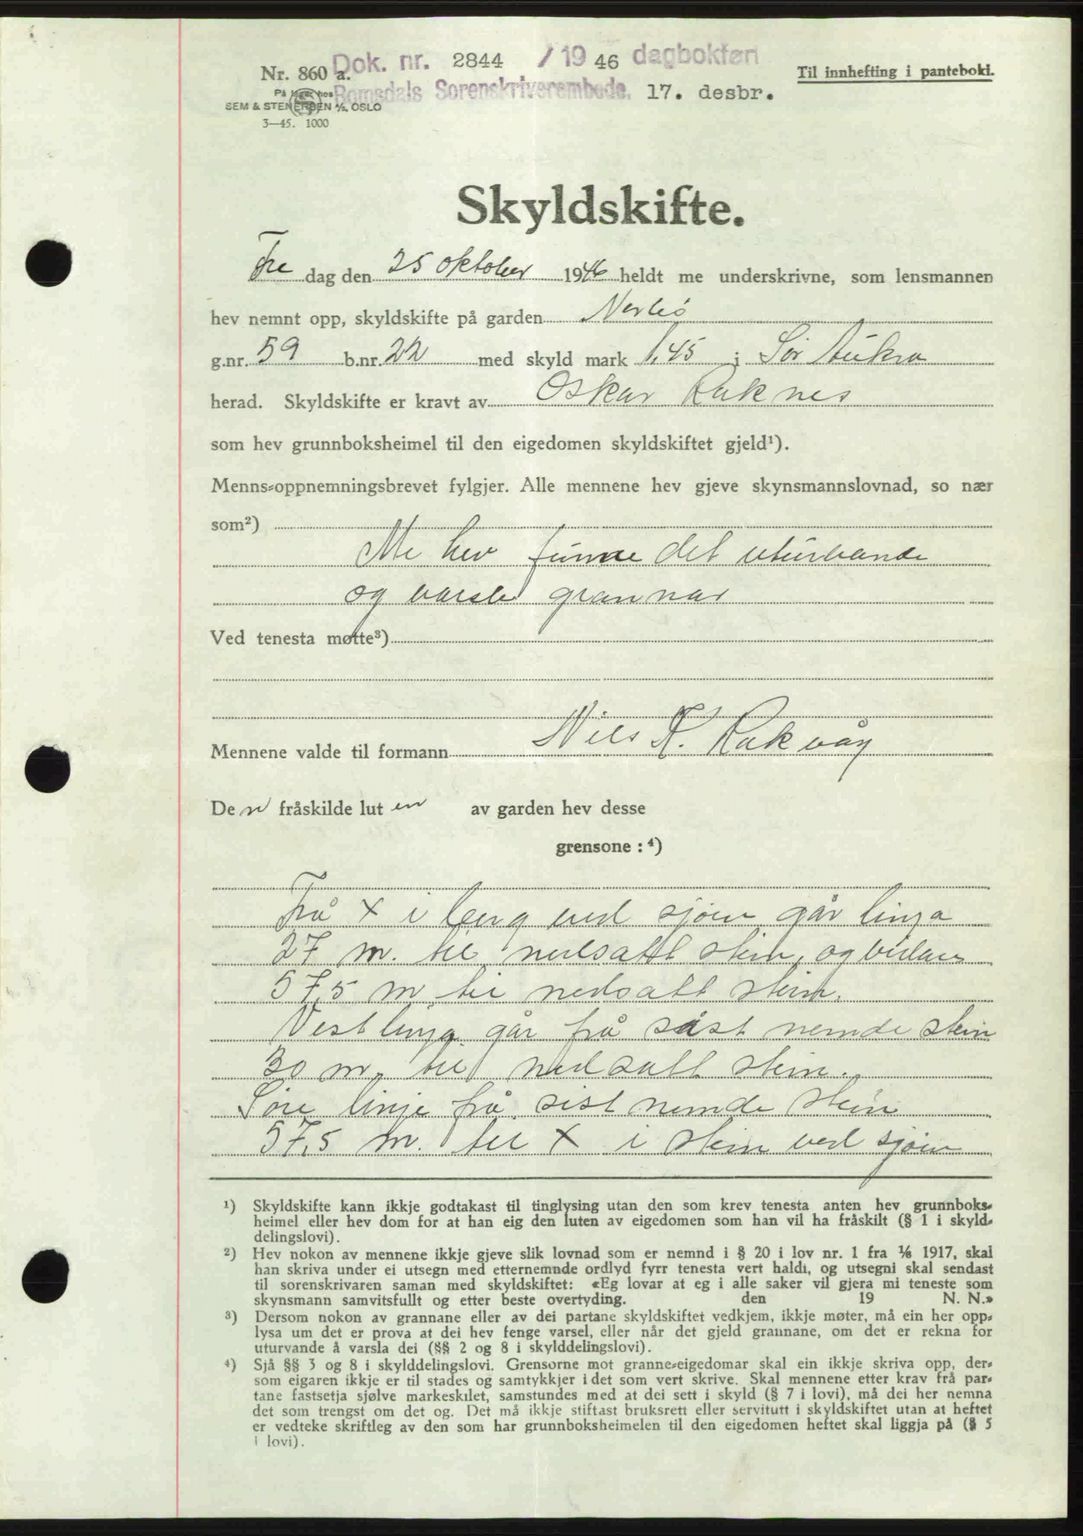 Dok. nr. 2844 / 19 46 dagbokført
Nr. 860 a.
Til innhefting i panteboki.
Romsdals Sorenskriverembede. 17. desbr.
SEM & STENERSEN A/S, OSLO
3—45. 1000
Skyldskifte.
Fre dag den 25 oktober 1946 heldt me underskrivne, som lensmannen
hev nemnt opp, skyldskifte på garden Nerbö
g.nr. 59 b.nr. 22 med skyld mark 1,45 i Sör Aukra
herad. Skyldskifte er kravt av Oskar Raknes
som hev grunnboksheimel til den eigedomen skyldskiftet gjeld¹).
Menns-oppnemningsbrevet fylgjer. Alle mennene hev gjeve skynsmannslovnad, so nær
som²)
Me hev funne det uturvande
og varsle grannar
Ved tenesta møtte³)
Mennene valde til formann Nils K. Rakvåg
De n fråskilde lut en av garden hev desse
grensone : ⁴)
Frå X i berg ved sjöen går linja
27 m. til nedsatt stein, og vidare
57,5 m til nedsatt stein.
Vest linja går frå sist nemde stein
30 m. til nedsatt stein.
Söre linje frå sist nemde stein
57,5 m. til X i stein ved sjöen
¹) Skyldskifte kann ikkje godtakast til tinglysing utan den som krev tenesta anten hev grunnboks-
heimel eller hev dom for at han eig den luten av eigedomen som han vil ha fråskilt (§ 1 i skyld-
delingslovi).
²) Hev nokon av mennene ikkje gjeve slik lovnad som er nemnd i § 20 i lov nr. 1 fra ¹/₆ 1917, skal
han skriva under ei utsegn med etternemnde ordlyd fyrr tenesta vert haldi, og utsegni skal sendast
til sorenskrivaren saman med skyldskiftet: «Eg lovar at eg i alle saker vil gjera mi teneste som
skynsmann samvitsfullt og etter beste overtyding. den 19 N. N.»
³) Dersom nokon av grannane eller av dei partane skyldskiftet vedkjem, ikkje møter, må ein her opp-
lysa um det er prova at dei hev fenge varsel, eller når det gjeld grannane, om det er rekna for
uturvande å varsla dei (§§ 2 og 8 i skylddelingslovi).
⁴) Sjå §§ 3 og 8 i skylddelingslovi. Grensorne mot granne-eigedomar skal ein ikkje skriva opp, der-
som eigaren ikkje er til stades og samtykkjer i det som vert skrive. Skal mennene etter krav frå par-
tane fastsetja sjølve markeskilet, samstundes med at dei sett i skyld (§ 7 i lovi), må dei her nemna
det som trengst om det og. Det må ikkje stiftast bruksrett eller servitutt i skyldskiftet utan at heftet
er vedteke skriftleg av den som har grunnboksheimelen til den eigedomen heftet skal liggja på (§ 5
i lovi).